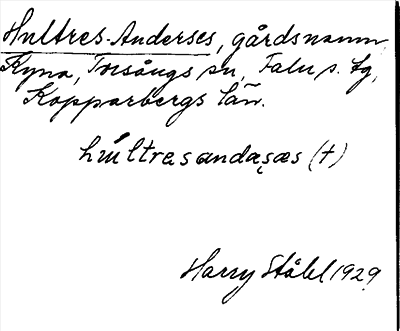 Hultres-Anderses, gårdsnamn,
Kyna, Torsångs sn, Falu s. tg,
Kopparbergs län.
húltresandaʂæs (†)
Harry Ståhl 1929